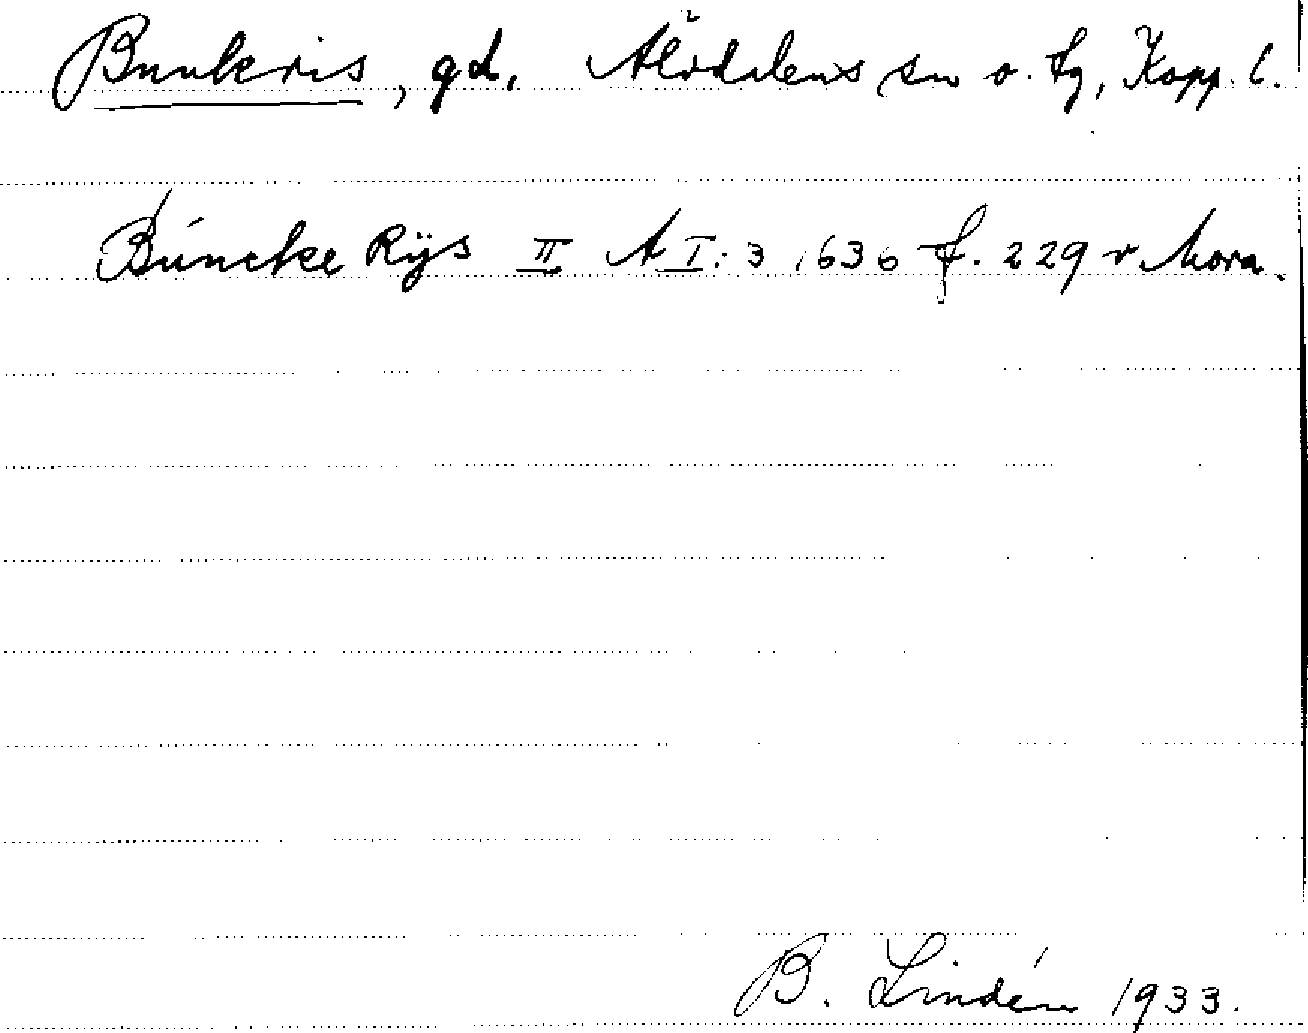 Bunkris, gd, Älvdalens sn o. tg, Kopp. l.
Buncke Rÿs II A I: 3 1636 f. 229 v Mora.
B. Lindén 1933.